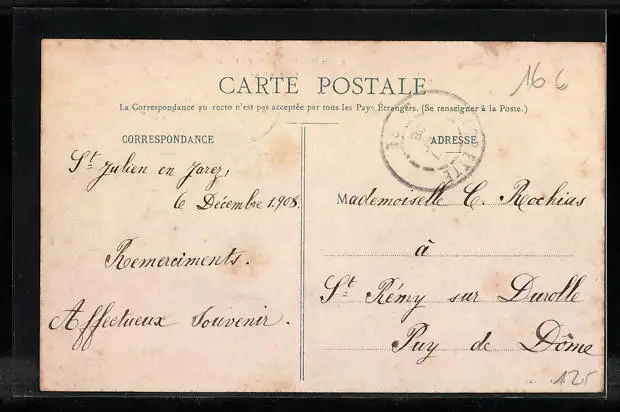 CARTE POSTALE
La Correspondance au recto n'est pas acceptée par tous les Pays Étrangers. (Se renseigner à la Poste.)
CORRESPONDANCE
St Julien en Jarez,
6 Décembre 1.908.
Remerciments.
Affectueux Souvenir.
ADRESSE
Mademoiselle C. Rochias
à
St Rémy sur Durolle
Puy de Dôme
166